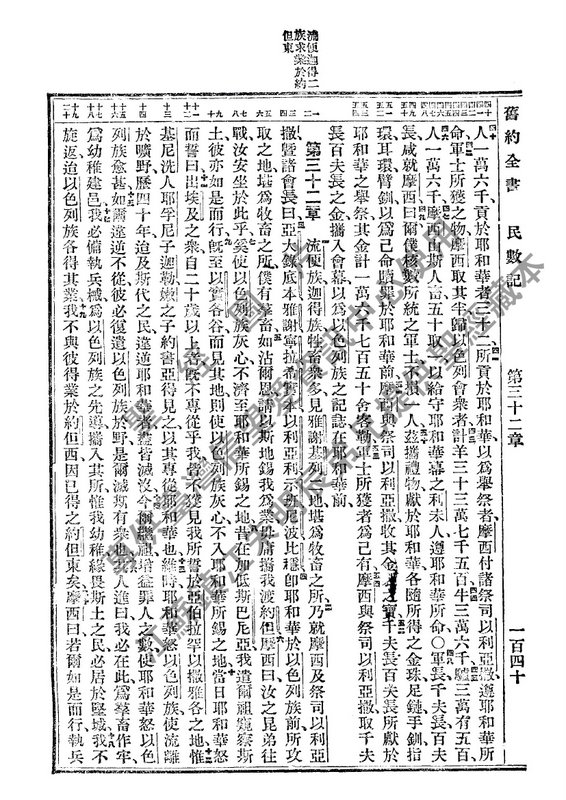 舊約全書 民數記 第三十二章 一百四十
流便迦得二
族求業於約
但東
人一萬六千貢於耶和華者三十二所貢於耶和華以爲舉祭者摩西付諸祭司以利亞撒遵耶和華所
命軍士所獲之物摩西取其半歸以色列會衆者計羊三十三萬七千五百牛三萬六千驢三萬有五百
人一萬六千摩西由斯人畜五十取一以給守耶和華幕之利未人遵耶和華所命〇軍長千夫長百夫
長咸就摩西曰爾僕核數所統之軍士不損一人玆攜禮物獻於耶和華各隨所得之金珠足鏈手釧指
環耳環臂釧以爲己命贖罪於耶和華前摩西與祭司以利亞撒收其金之寶千夫長百夫長所獻於
耶和華之舉祭其金計一萬六千七百五十舍客勒軍士所獲者爲己有摩西與祭司以利亞撒取千夫
長百夫長之金攜入會幕以爲以色列族之記誌在耶和華前
第三十二章 流便族迦得族牲畜衆多見雅謝基列之地堪爲牧畜之所乃就摩西及祭司以利亞
撒暨諸會長曰亞大錄底本雅謝寧拉希實本以利亞利示班尼波比穩卽耶和華於以色列族前所攻
取之地堪爲牧畜之所僕有羣畜如沾爾恩請以斯地錫我爲業毋庸攜我渡約但摩西曰汝之昆弟往
戰汝安坐於此乎奚使以色列族灰心不濟至耶和華所錫之地昔在加低斯巴尼亞我遣爾祖窺察斯
土彼亦如是而行旣至以實各谷而見其地則使以色列族灰心不入耶和華所錫之地當日耶和華怒
而誓曰出埃及之衆自二十歲以上者旣不專從乎我皆不獲見我所誓於亞伯拉罕以撒雅各之地惟
基尼洗人耶孚尼子迦勒嫩之子約書亞得見之以其專從耶和華也維時耶和華怒以色列族使流離
於曠野歷四十年迨及斯代之民違逆耶和華者盡皆滅沒今爾繼爾祖增益罪人之數使耶和華怒以色
列族愈甚如爾違逆不從彼必復遺以色列族於野是爾滅斯有衆也人進曰我必在此爲羣畜作牢
爲幼稚建邑我必備執兵械爲以色列族之先導攜入其所惟我幼稚緣畏斯土之民必居於堅城我不
旋返迨以色列族各得其業我不與彼得業於約但西因已得之約但東矣摩西曰若爾如是而行執兵